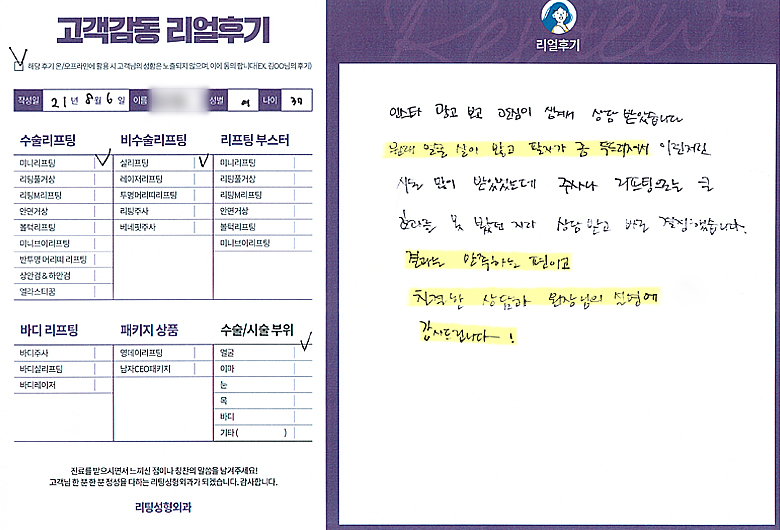 고객감동 리얼후기
해당 후기 온/오프라인에 활용 시 고객님의 성함은 노출되지 않으며, 이에 동의 합니다(EX. 김OO님의 후기)
작성일 21년 8월 6일 이름 성별 여 나이 37
수술리프팅
미니리프팅
리팅풀거상
리팅M리프팅
안면거상
볼턱리프팅
미니브이리프팅
반투명 머리띠 리프팅
상안검 & 하안검
엘라스티꿈
비수술리프팅
실리프팅
레이저리프팅
투명머리띠리프팅
리팅주사
베네핏주사
리프팅 부스터
미니리프팅
리팅풀거상
리팅M리프팅
안면거상
볼턱리프팅
미니브이리프팅
바디 리프팅
바디주사
바디실리프팅
바디레이저
패키지 상품
영데이리프팅
남자CEO패키지
수술/시술 부위
얼굴
이마
눈
목
바디
기타 ( )
진료를 받으시면서 느끼신 점이나 칭찬의 말씀을 남겨주세요!
고객님 한 분 한 분 정성을 다하는 리팅성형외과가 되겠습니다. 감사합니다.
리팅성형외과
Review
리얼후기
인스타 광고 보고 관심이 생겨서 상담 받았습니다
원래 얼굴 살이 많고 팔자가 좀 두드러져서 이런저런
시술 많이 받았었는데 주사나 리프팅으로는 큰
효과를 못 봤던 지라 상담 받고 바로 결정했습니다.
결과는 만족하는 편이고
친절한 상담과 원장님의 설명에
감사드립니다~!